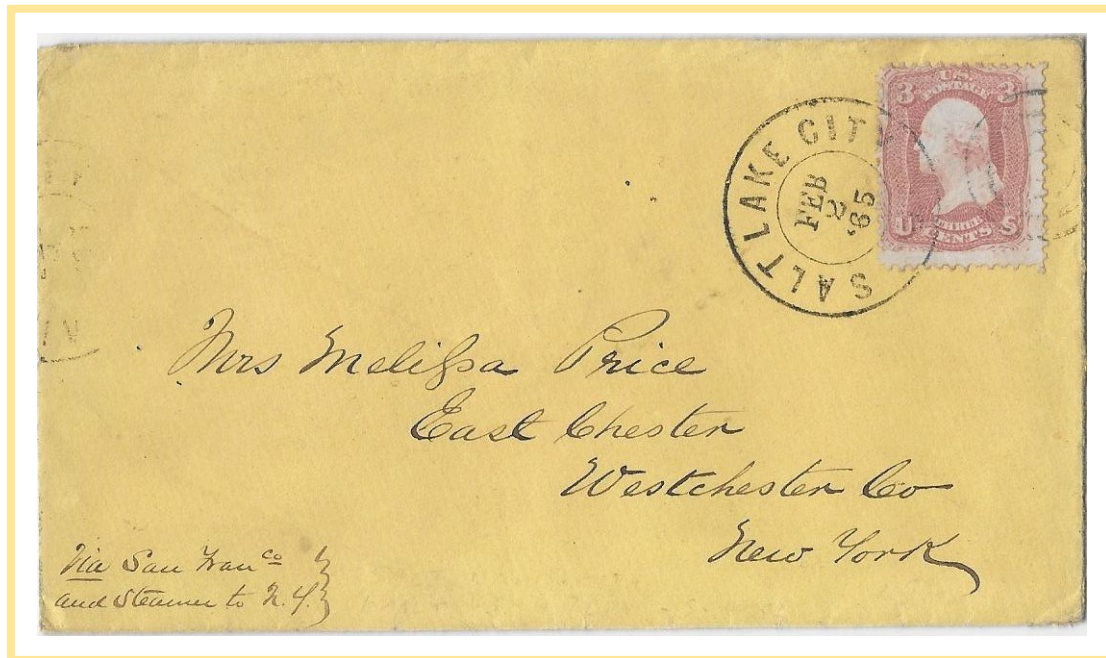 U.S.
POSTAGE
3 3
U S
THREE
CENTS
SALT LAKE CITY
FEB
2
'65
Mrs Melissa Price
East Chester
Westchester Co
New York
Via San Franco
and Steamer to N.Y.